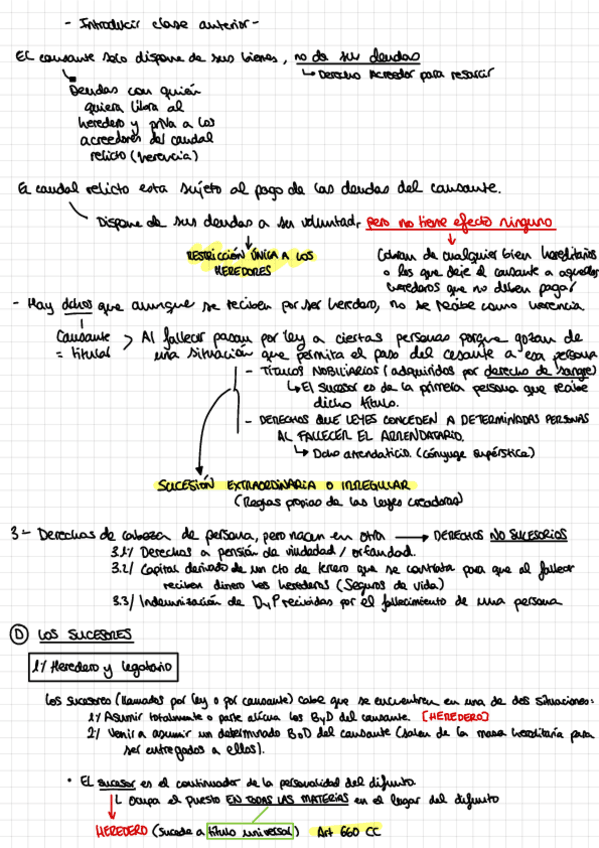 - Introducir clase anterior -
El causante solo dispone de sus bienes, no de sus deudas
↳ Derecho Acreedor para resarcir
Deudas con quién
quiera libra al
heredero y priva a los
acreedores del caudal
relicto (herencia)
El caudal relicto esta sujeto al pago de las deudas del causante.
Dispone de sus deudas a su voluntad, pero no tiene efecto ninguno
RESTRICCIÓN ÚNICA A LOS
HEREDORES
Cobran de cualquier bien hereditarios
o los que deje el causante a aquellos
herederos que no deben pagar
- Hay dchos que aunque se reciben por ser heredero, no se recibe como herencia.
Causante
= titular
> Al fallecer pasan por ley a ciertas personas porque gozan de
una situación que permita el paso del cesante a esa persona
- TÍTULOS NOBILIARIOS (adquiridos por derecho de sangre)
↳ El sucesor es de la primera persona que recibe
dicho título.
- DERECHOS QUE LEYES CONCEDEN A DETERMINADAS PERSONAS
AL FALLECER EL ARRENDATARIO.
↳ Dcho arrendaticio. (cónyuge supérstite)
SUCESIÓN EXTRAORDINARIA O IRREGULAR
(Reglas propias de las leyes creadoras)
3- Derechos de cabeza de persona, pero nacen en otra → DERECHOS NO SUCESORIOS
3.1/ Derechos a pensión de viudedad / orfandad.
3.2/ Capital derivado de un cto de tercero que se contrata para que al fallecer
reciben dinero los herederos (Seguros de vida)
3.3/ Indemnización de DyP recibidas por el fallecimiento de una persona
D LOS SUCESORES
1/ Heredero y legatario
Los sucesores (llamados por ley o por causante) cabe que se encuentren en una de dos situaciones:
1/ Asumir totalmente o parte alícua los ByD del causante. [HEREDERO]
2/ Venir a asumir un determinado BoD del causante (salen de la masa hereditaria para
ser entregados a ellos).
• EL sucesor es el continuador de la personalidad del difunto.
↳ Ocupa el puesto EN TODAS LAS MATERIAS en el lugar del difunto
HEREDERO (Sucede a título universal) Art 660 CC